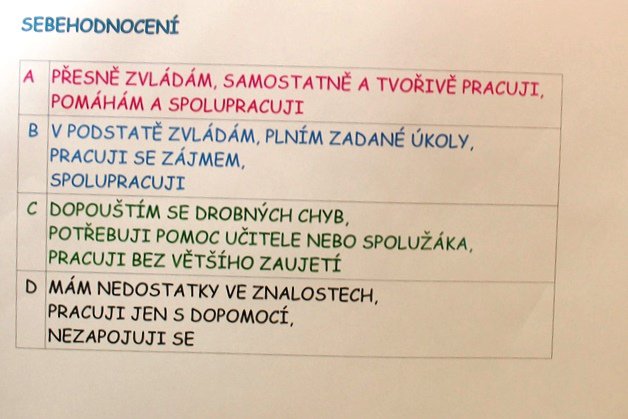 SEBEHODNOCENÍ
A PŘESNĚ ZVLÁDÁM, SAMOSTATNĚ A TVOŘIVĚ PRACUJI,
POMÁHÁM A SPOLUPRACUJI
B V PODSTATĚ ZVLÁDÁM, PLNÍM ZADANÉ ÚKOLY,
PRACUJI SE ZÁJMEM,
SPOLUPRACUJI
C DOPOUŠTÍM SE DROBNÝCH CHYB,
POTŘEBUJI POMOC UČITELE NEBO SPOLUŽÁKA,
PRACUJI BEZ VĚTŠÍHO ZAUJETÍ
D MÁM NEDOSTATKY VE ZNALOSTECH,
PRACUJI JEN S DOPOMOCÍ,
NEZAPOJUJI SE